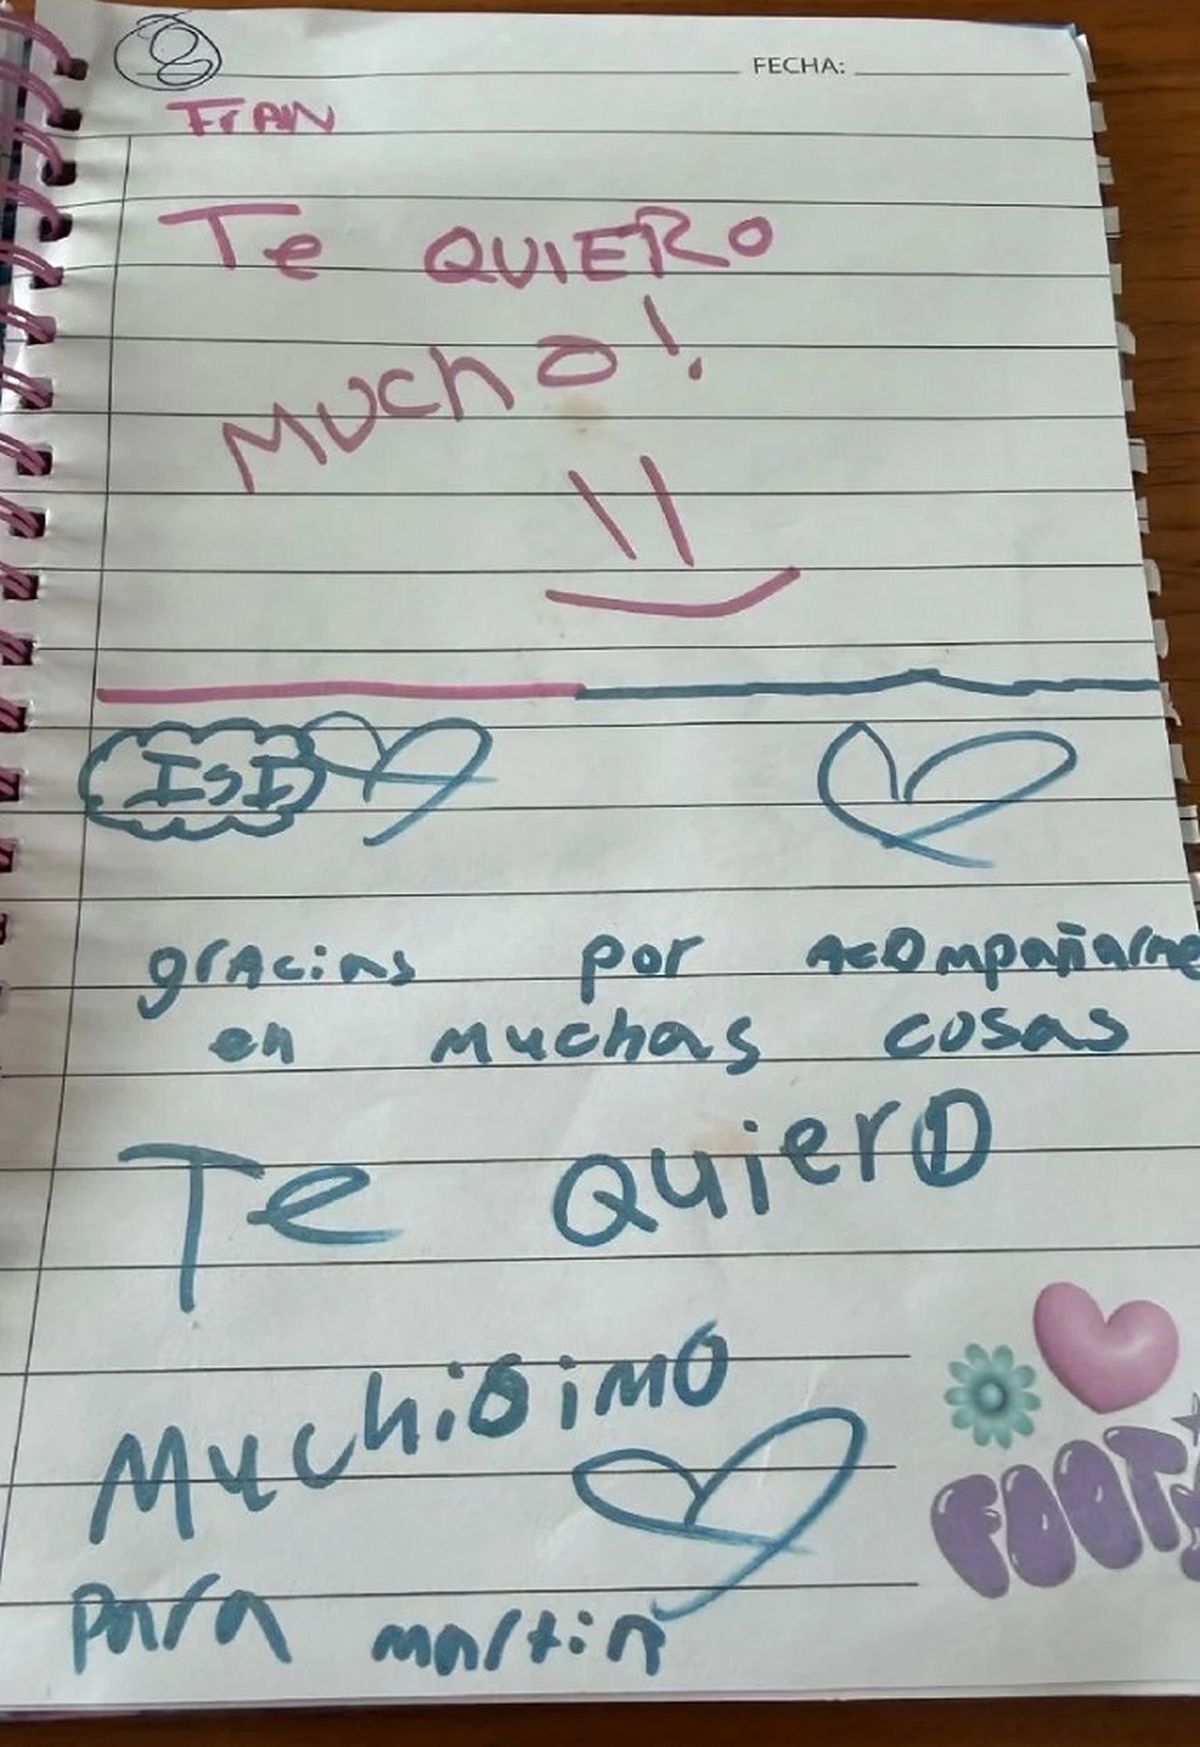 8
FECHA:
FrAN
Te QUIERO
MUchO!
IsI
grAcias por AcOmpañarme
en muchas cosas
Te QuierO
MuchisiMO
para martin
FOOT